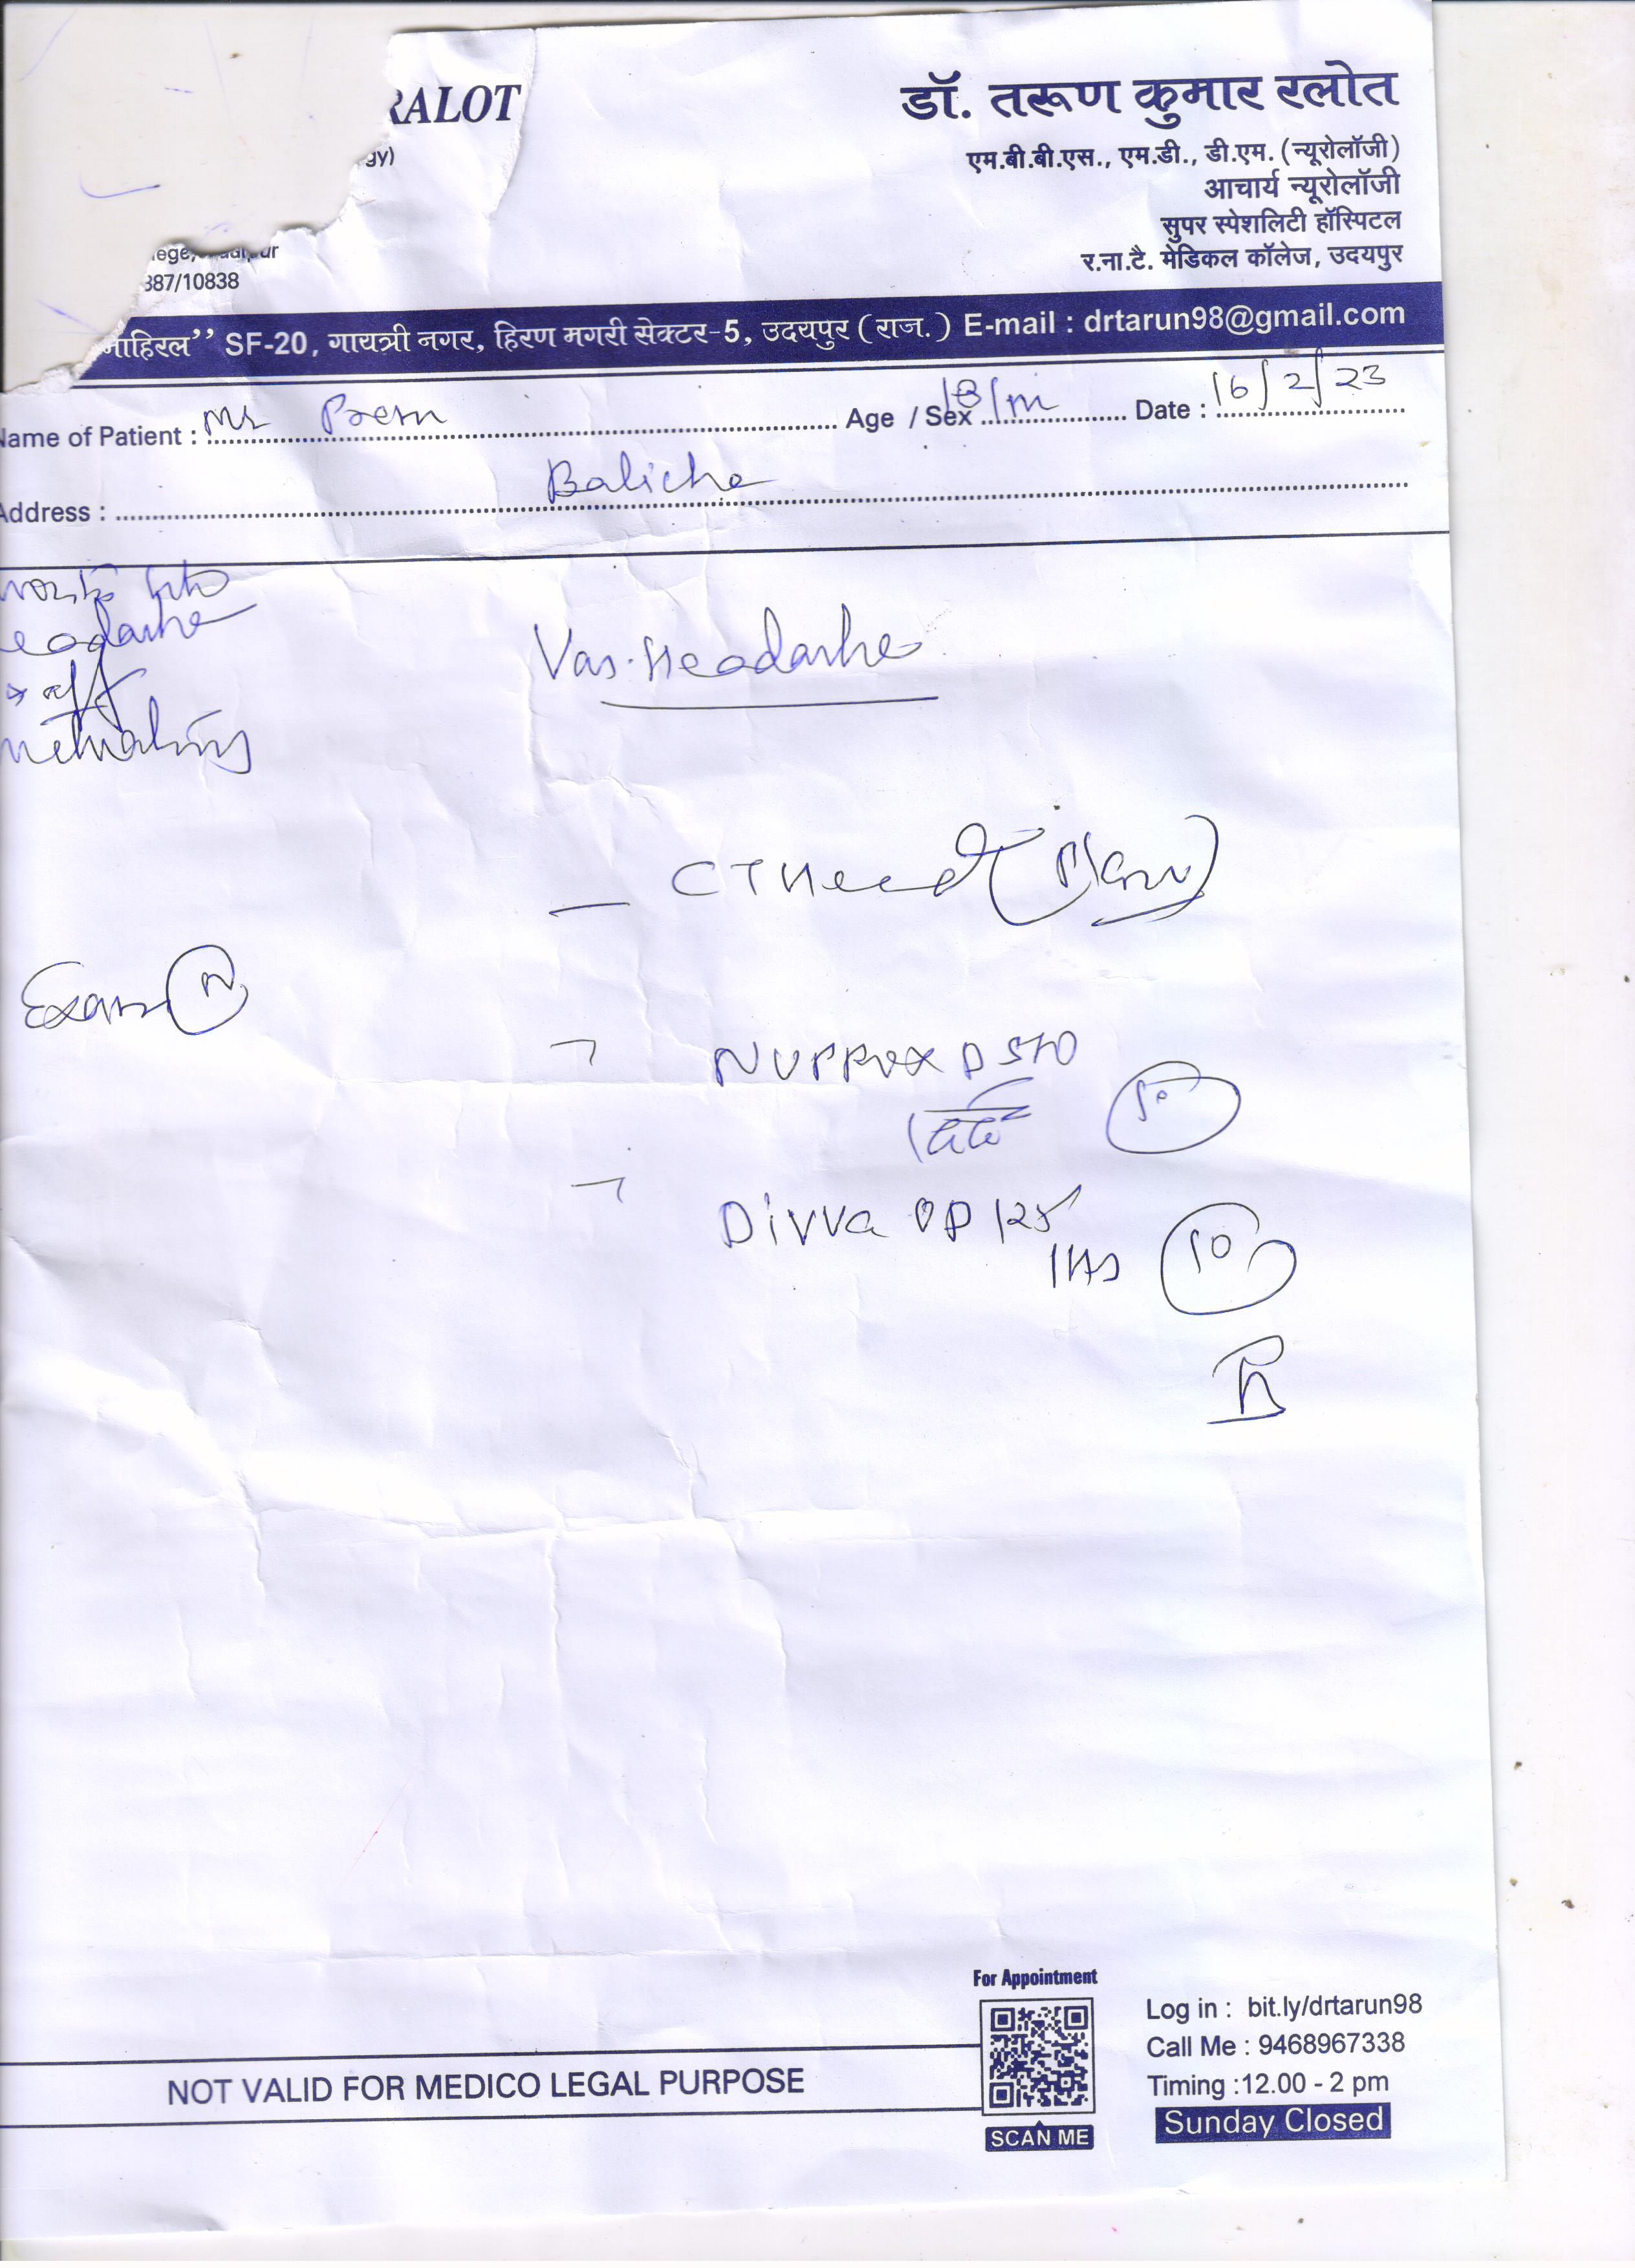 RALOT
gy)
lege, Udaipur
387/10838
डॉ. तरूण कुमार रलोत
एम.बी.बी.एस., एम.डी., डी.एम. (न्यूरोलॉजी)
आचार्य न्यूरोलॉजी
सुपर स्पेशलिटी हॉस्पिटल
र.ना.टै. मेडिकल कॉलेज, उदयपुर
माहिरल” SF-20, गायत्री नगर, हिरण मगरी सेक्टर-5, उदयपुर (राज.) E-mail : drtarun98@gmail.com
Name of Patient : Mr Prem Age / Sex 18/m Date : 16/2/23
Address : Baliche
eadache
Vas. Headache
CT Head (Plain)
Exam N
D 510
10
Divva OD 125
1HS 10
For Appointment
SCAN ME
Log in : bit.ly/drtarun98
Call Me : 9468967338
Timing :12.00 - 2 pm
Sunday Closed
NOT VALID FOR MEDICO LEGAL PURPOSE